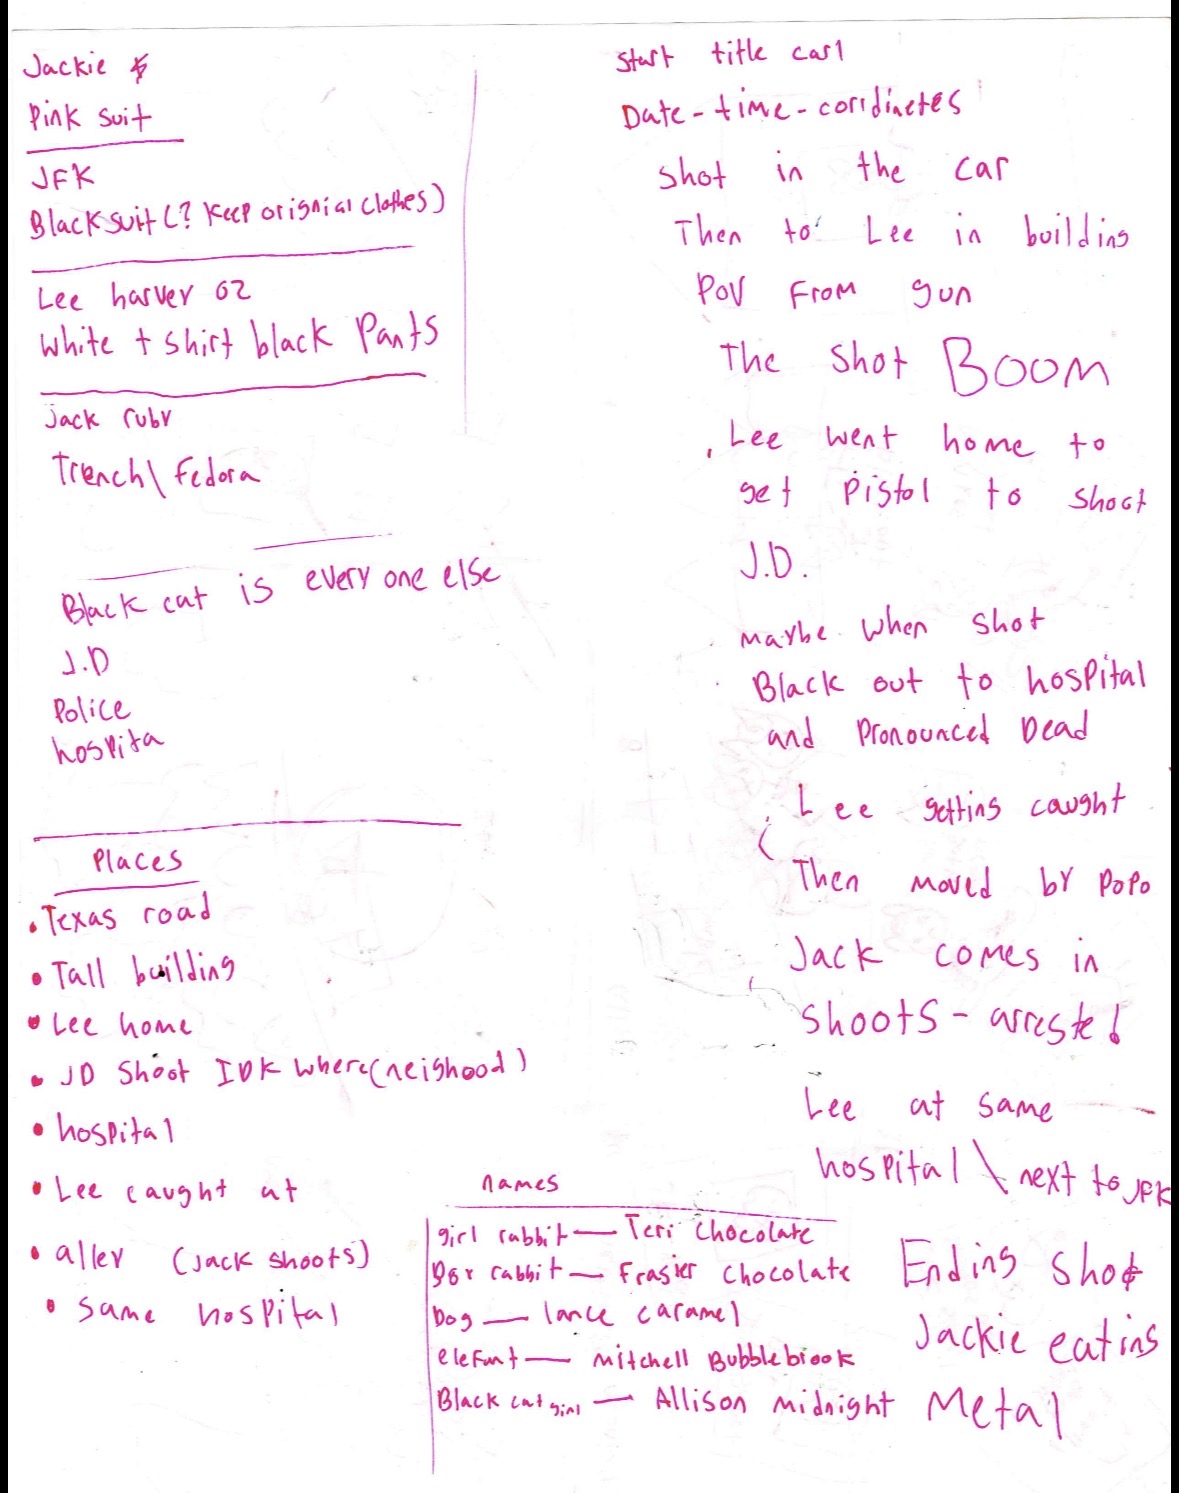 Jackie
Pink suit
JFK
Black suit (? Keep orisnial clothes)
Lee harver oz
white t shirt black Pants
Jack ruby
Trench\ Fedora
Black cat is every one else
J.D
Police
hospita
Places
• Texas road
• Tall building
• Lee home
• JD Shoot IDK where (neishood)
• hospital
• Lee caught at
• alley (Jack shoots)
• same hospital
names
girl rabbit — Teri Chocolate
Boy rabbit — Frasier chocolate
Dog — lance caramel
elefant — Mitchell Bubblebrook
Black cat girl — Allison midnight
Start title card
Date - time - cordinetes
Shot in the car
Then to Lee in building
POV From gun
The Shot BOOM
Lee went home to
get Pistol to shoot
J.D.
maybe when shot
Black out to hospital
and Pronounced Dead
Lee getting caught
Then moved by PoPo
Jack comes in
shoots - arrested
Lee at same
hospital \ next to JFK
Ending shot
Jackie eating
Metal